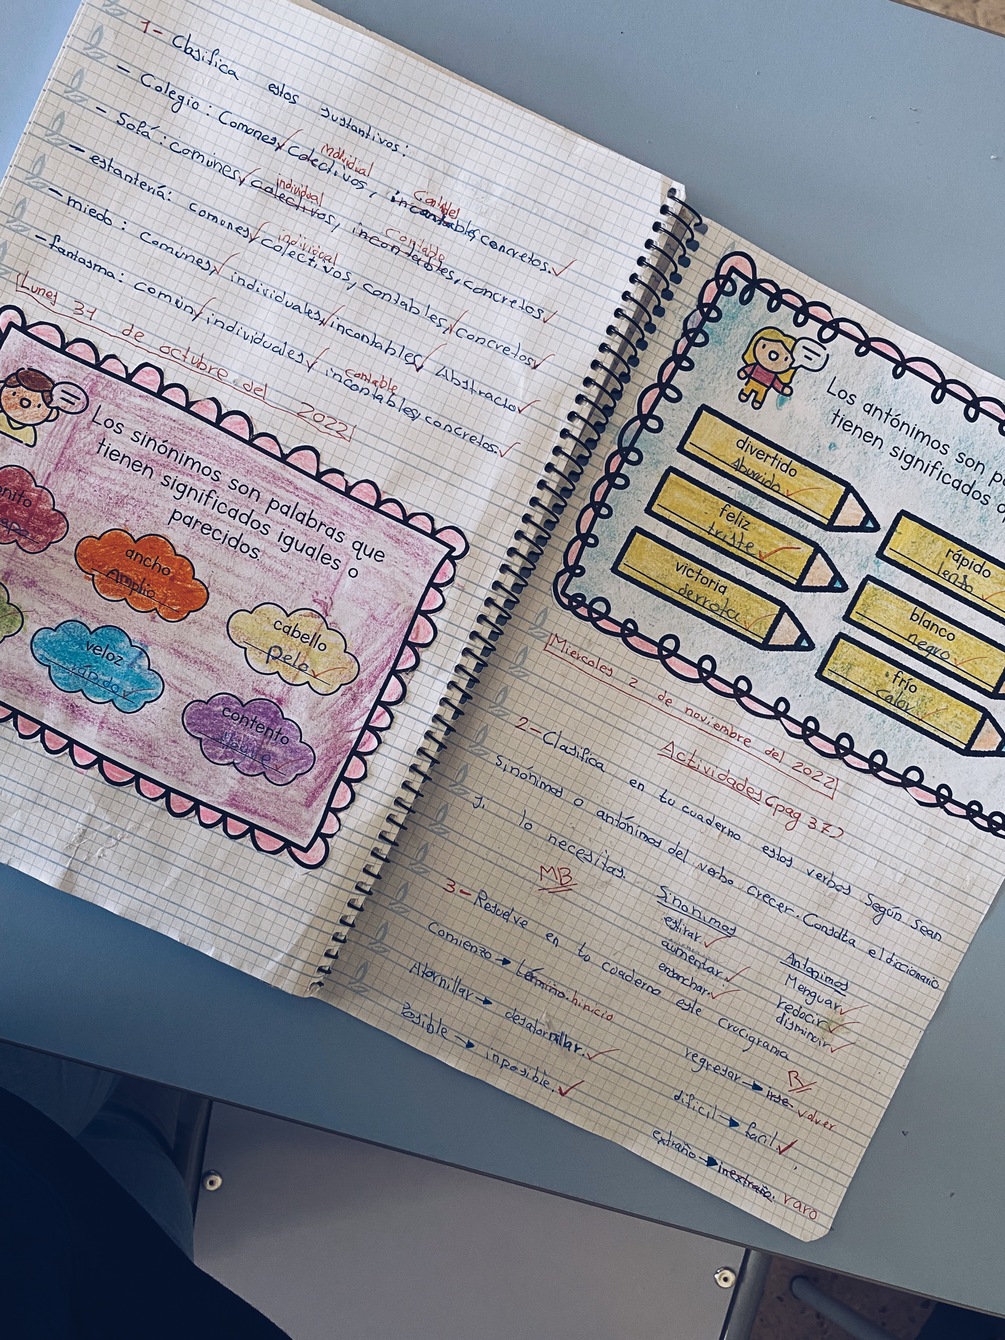 1- Clasifica estos sustantivos:
- Colegio: Comunes, Colectivos, incontables, concretos.
individual Contable
- Sofá: comúnes, colectivos, incontables, concretos
individual contable
- estantería: comunes, colectivos, contables, concretos
individual
- miedo: comúnes, individuales, incontables, Abstracto
- fantasma: común, individuales, incontables, concretos
contable
Lunes 31 de octubre del 2022
Los sinónimos son palabras que
tienen significados iguales o
parecidos.
ancho
Amplio
cabello
Pelo
veloz
rápido
contento
Los antónimos son
tienen significados
divertido
Aburrido
feliz
triste
victoria
derrota
rápido
lento
blanco
negro
frío
calor
Miercoles 2 de noviembre del 2022
Actividades (pag 37)
2- Clasifica en tu cuaderno estos verbos Según sean
sinónimos o antónimos del verbo crecer. Consulta el diccionario
si lo necesitas.
MB
Sinonimos
estirar.
aumentar.
ensanchar.
Antonimos
Menguar
redocir
disminuir
3- Resuelve en tu cuaderno este crucigrama
B/
Comienzo → término. hinicio
Atornillar → desatornillar.
Posible → inposible.
regresar → irse volver
dificil → facil.
extraño → inextraño. raro